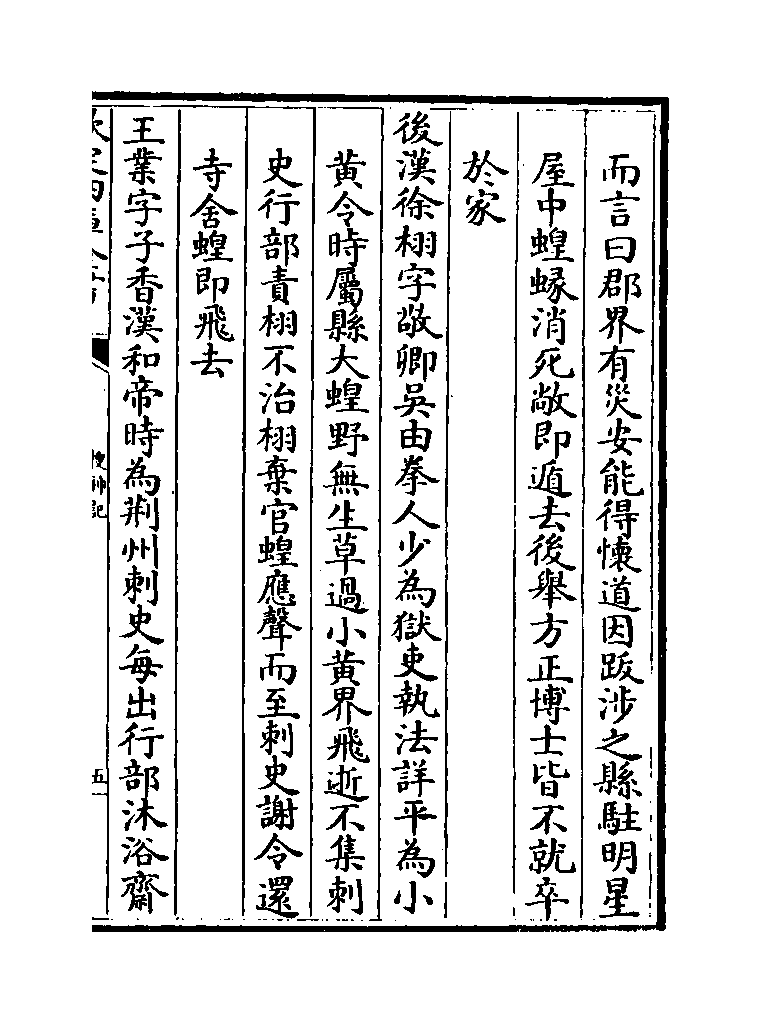 而言曰郡界有災安能得懷道因跋涉之縣駐明星
屋中蝗蝝消死敞即遁去後舉方正博士皆不就卒
於家
後漢徐栩字敬卿吳由拳人少為獄吏執法詳平為小
黃令時屬縣大蝗野無生草過小黃界飛逝不集刺
史行部責栩不治栩棄官蝗應聲而至刺史謝令還
寺舍蝗即飛去
王業字子香漢和帝時為荆州刺史每出行部沐浴齋
搜神記
五